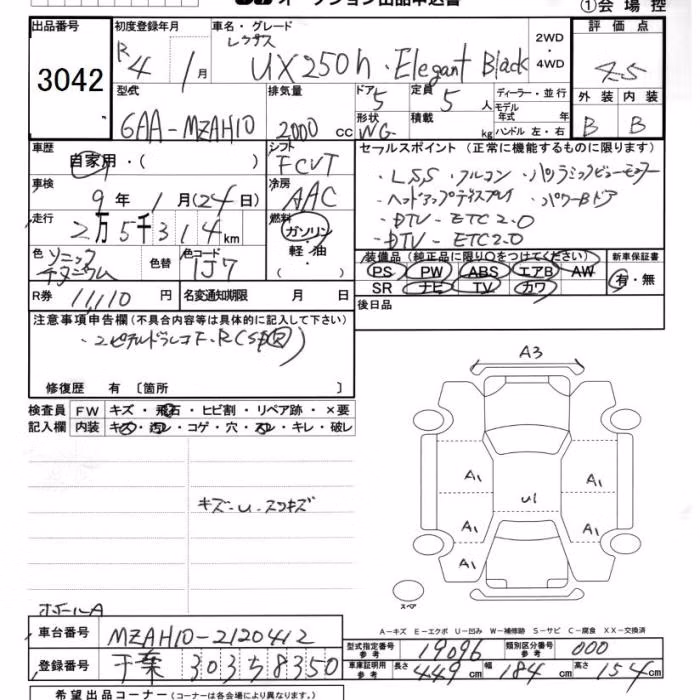 オークション出品申込書
①会場控
出品番号 初度登録年月 車名・グレード 2WD ・ 4WD 評価点
3042 R4 1月 レクサス UX250h・Elegant Black 4.5
型式 排気量 ドア 定員 ディーラー・並行 外装 内装
6AA-MZAH10 2000cc 5 5人 モデル年式 年式 B B
形状 WG 積載 kg ハンドル 左・右
車歴 シフト セールスポイント (正常に機能するものに限ります)
自家用・( ) FCVT ・LSS・フルコン・パノラミックビューモニター
車検 冷房 ・ヘッドアップディスプレイ ・パワーBドア
9年 1月(24日) AAC ・DTV-ETC2.0
走行 燃料 ・DTV-ETC2.0
2万5千314km ガソリン・軽・油( )
色 ソニックチタニウム 色替 色コード 1J7
装備品 (純正品に限り○をつけてください) 新車保証書
PS PW ABS エアB AW 有・無
SR ナビ TV カワ
R券 11,110円 名変通知期限 月 日 後日品
注意事項申告欄(不具合内容等は具体的に記入して下さい)
修復歴 有 〔箇所 〕
検査員 FW キズ・飛石・ヒビ割・リペア跡・×要
記入欄 内装 キズ・汚レ・コゲ・穴・スレ・キレ・破レ
キズ-U-スリキズ
A3
A1 A1
U1
A1 A1
A1
スペア
ホイールA
A-キズ E-エクボ U-凹み W-補修跡 S-サビ C-腐食 XX-交換済
車台番号 MZAH10-2120412
型式指定番号 参考 19096 類別区分番号 参考 000
登録番号 千葉 303 5 8350
車庫証明用 参考 長さ 449cm 幅 184cm 高さ 154cm
希望出品コーナー (コーナーは各会場により異なります。)